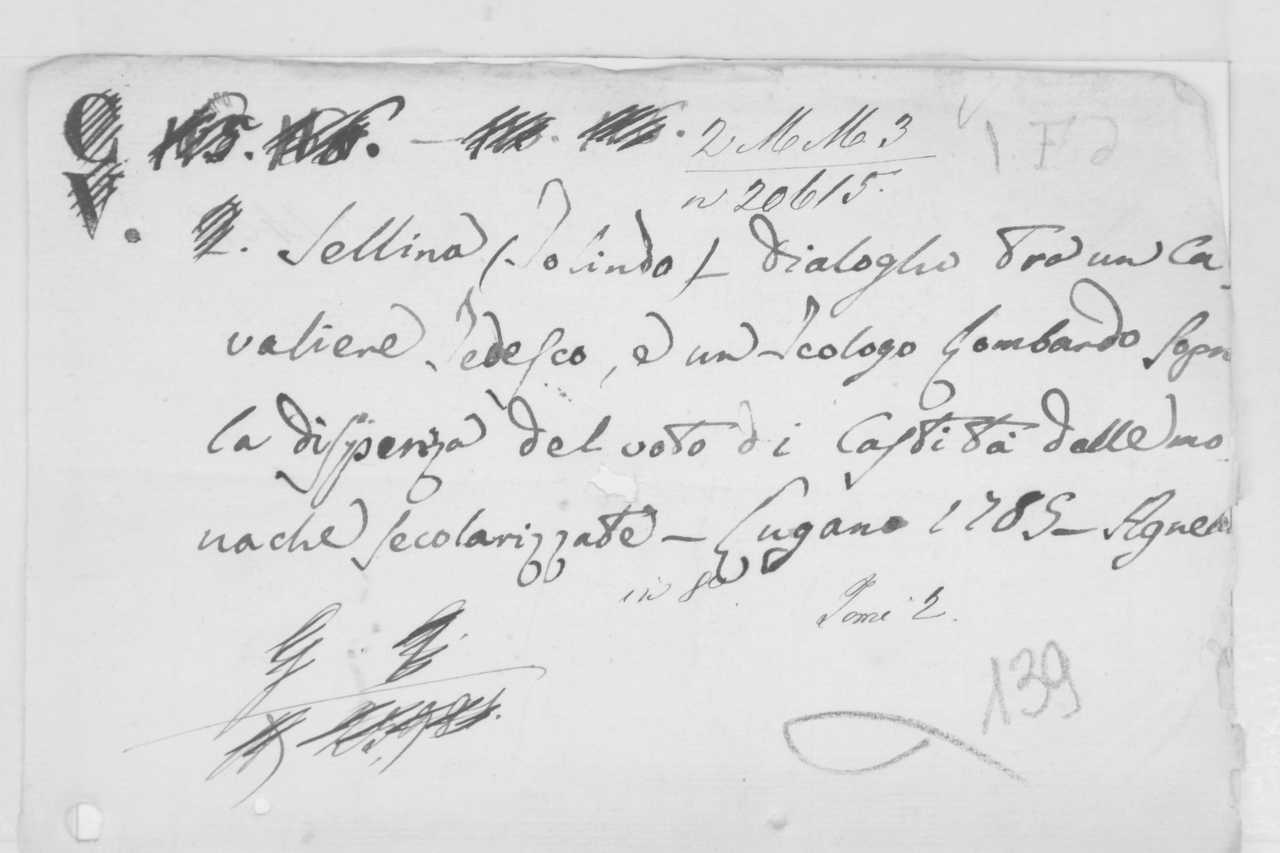 2 M M 3
n 20615.
Sellina (Jolindo) – Dialoghi Tra un Ca-
valiere Tedesco, e un Teologo Lombardo Sopra
la dispenza del voto di Castità delle mo
nache secolarizzate – Lugano 1785 – Agnelli
in 8o.
Tomi 2.
139